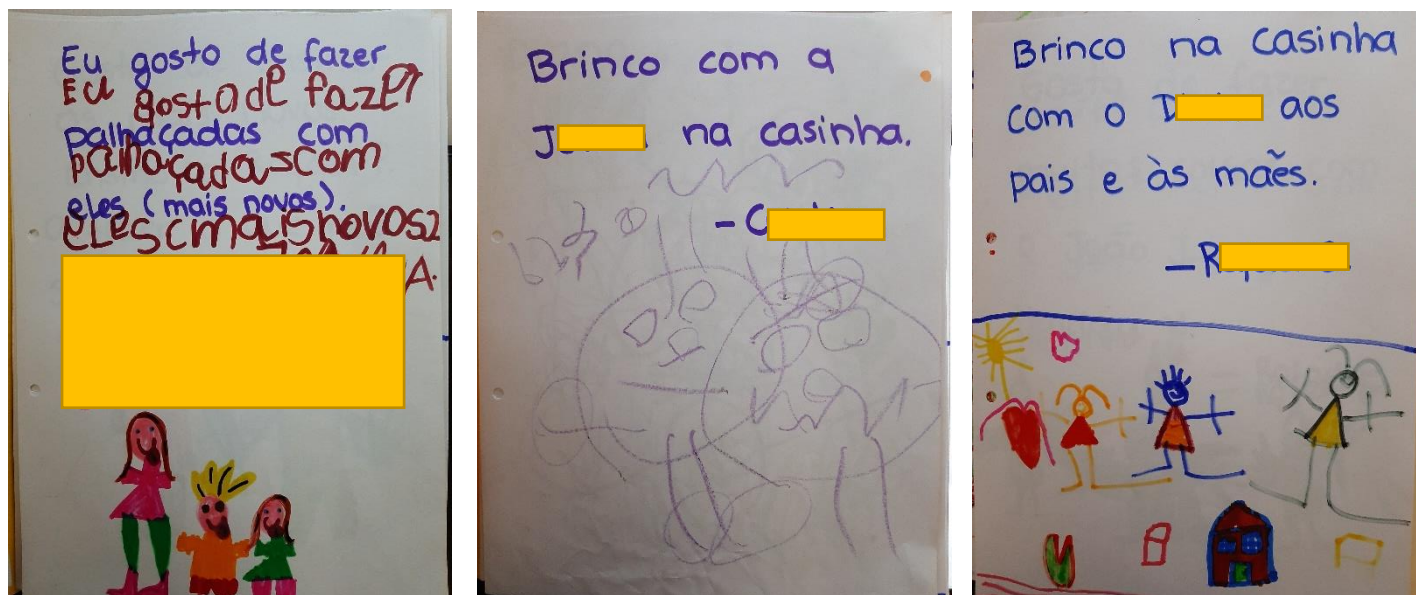 Eu gosto de fazer
EU gosta de fazer
palhaçadas com
palhaçadas com
eles (mais novos).
eLes cmaisnovosz
A.
Brinco com a
J na casinha.
- C
Brinco na casinha
com o D aos
pais e às mães.
- R